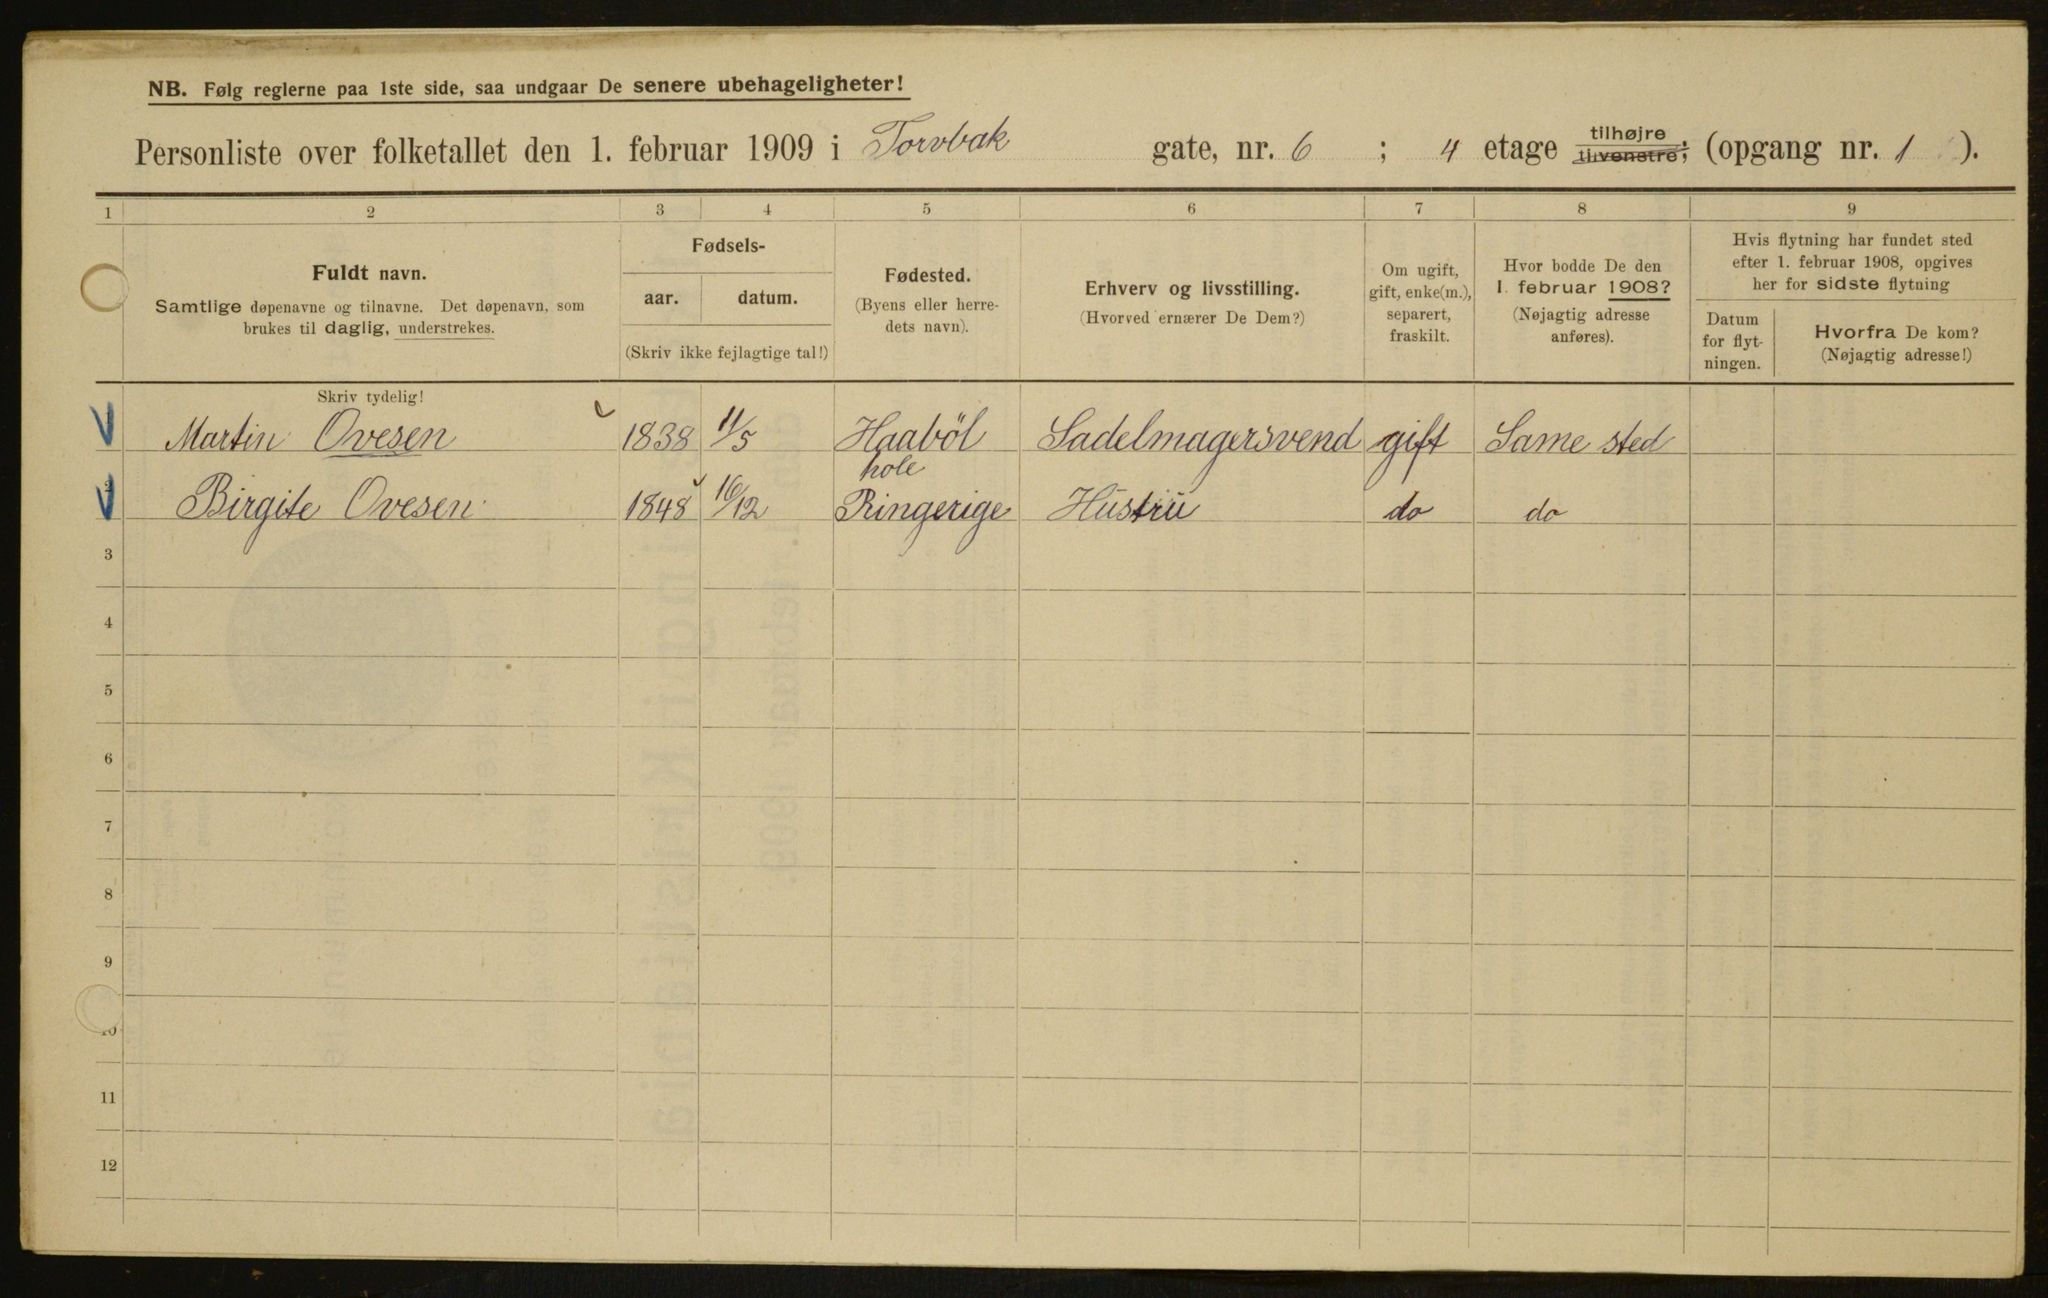 NB. Følg reglerne paa 1ste side, saa undgaar De senere ubehageligheter!
Personliste over folketallet den 1. februar 1909 i Torvbak gate, nr. 6 ; 4 etage tilhøjre tilvenstre; (opgang nr. 1 ).
1 2 3 4 5 6 7 8 9
Fuldt navn.
Samtlige døpenavne og tilnavne. Det døpenavn, som
brukes til daglig, understrekes.
Fødsels-
aar. datum.
(Skriv ikke fejlagtige tal!)
Fødested.
(Byens eller herre-
dets navn).
Erhverv og livsstilling.
(Hvorved ernærer De Dem?)
Om ugift,
gift, enke(m.),
separert,
fraskilt.
Hvor bodde De den
1. februar 1908?
(Nøjagtig adresse
anføres).
Hvis flytning har fundet sted
efter 1. februar 1908, opgives
her for sidste flytning
Datum
for flyt-
ningen.
Hvorfra De kom?
(Nøjagtig adresse!)
Skriv tydelig!
Martin Ovesen 1838 11/5 Haaböl Sadelmagersvend gift Same sted
hole
2 Birgite Ovesen 1848 16/12 Ringerige Hustru do do
3
4
5
6
7
8
9
10
11
12